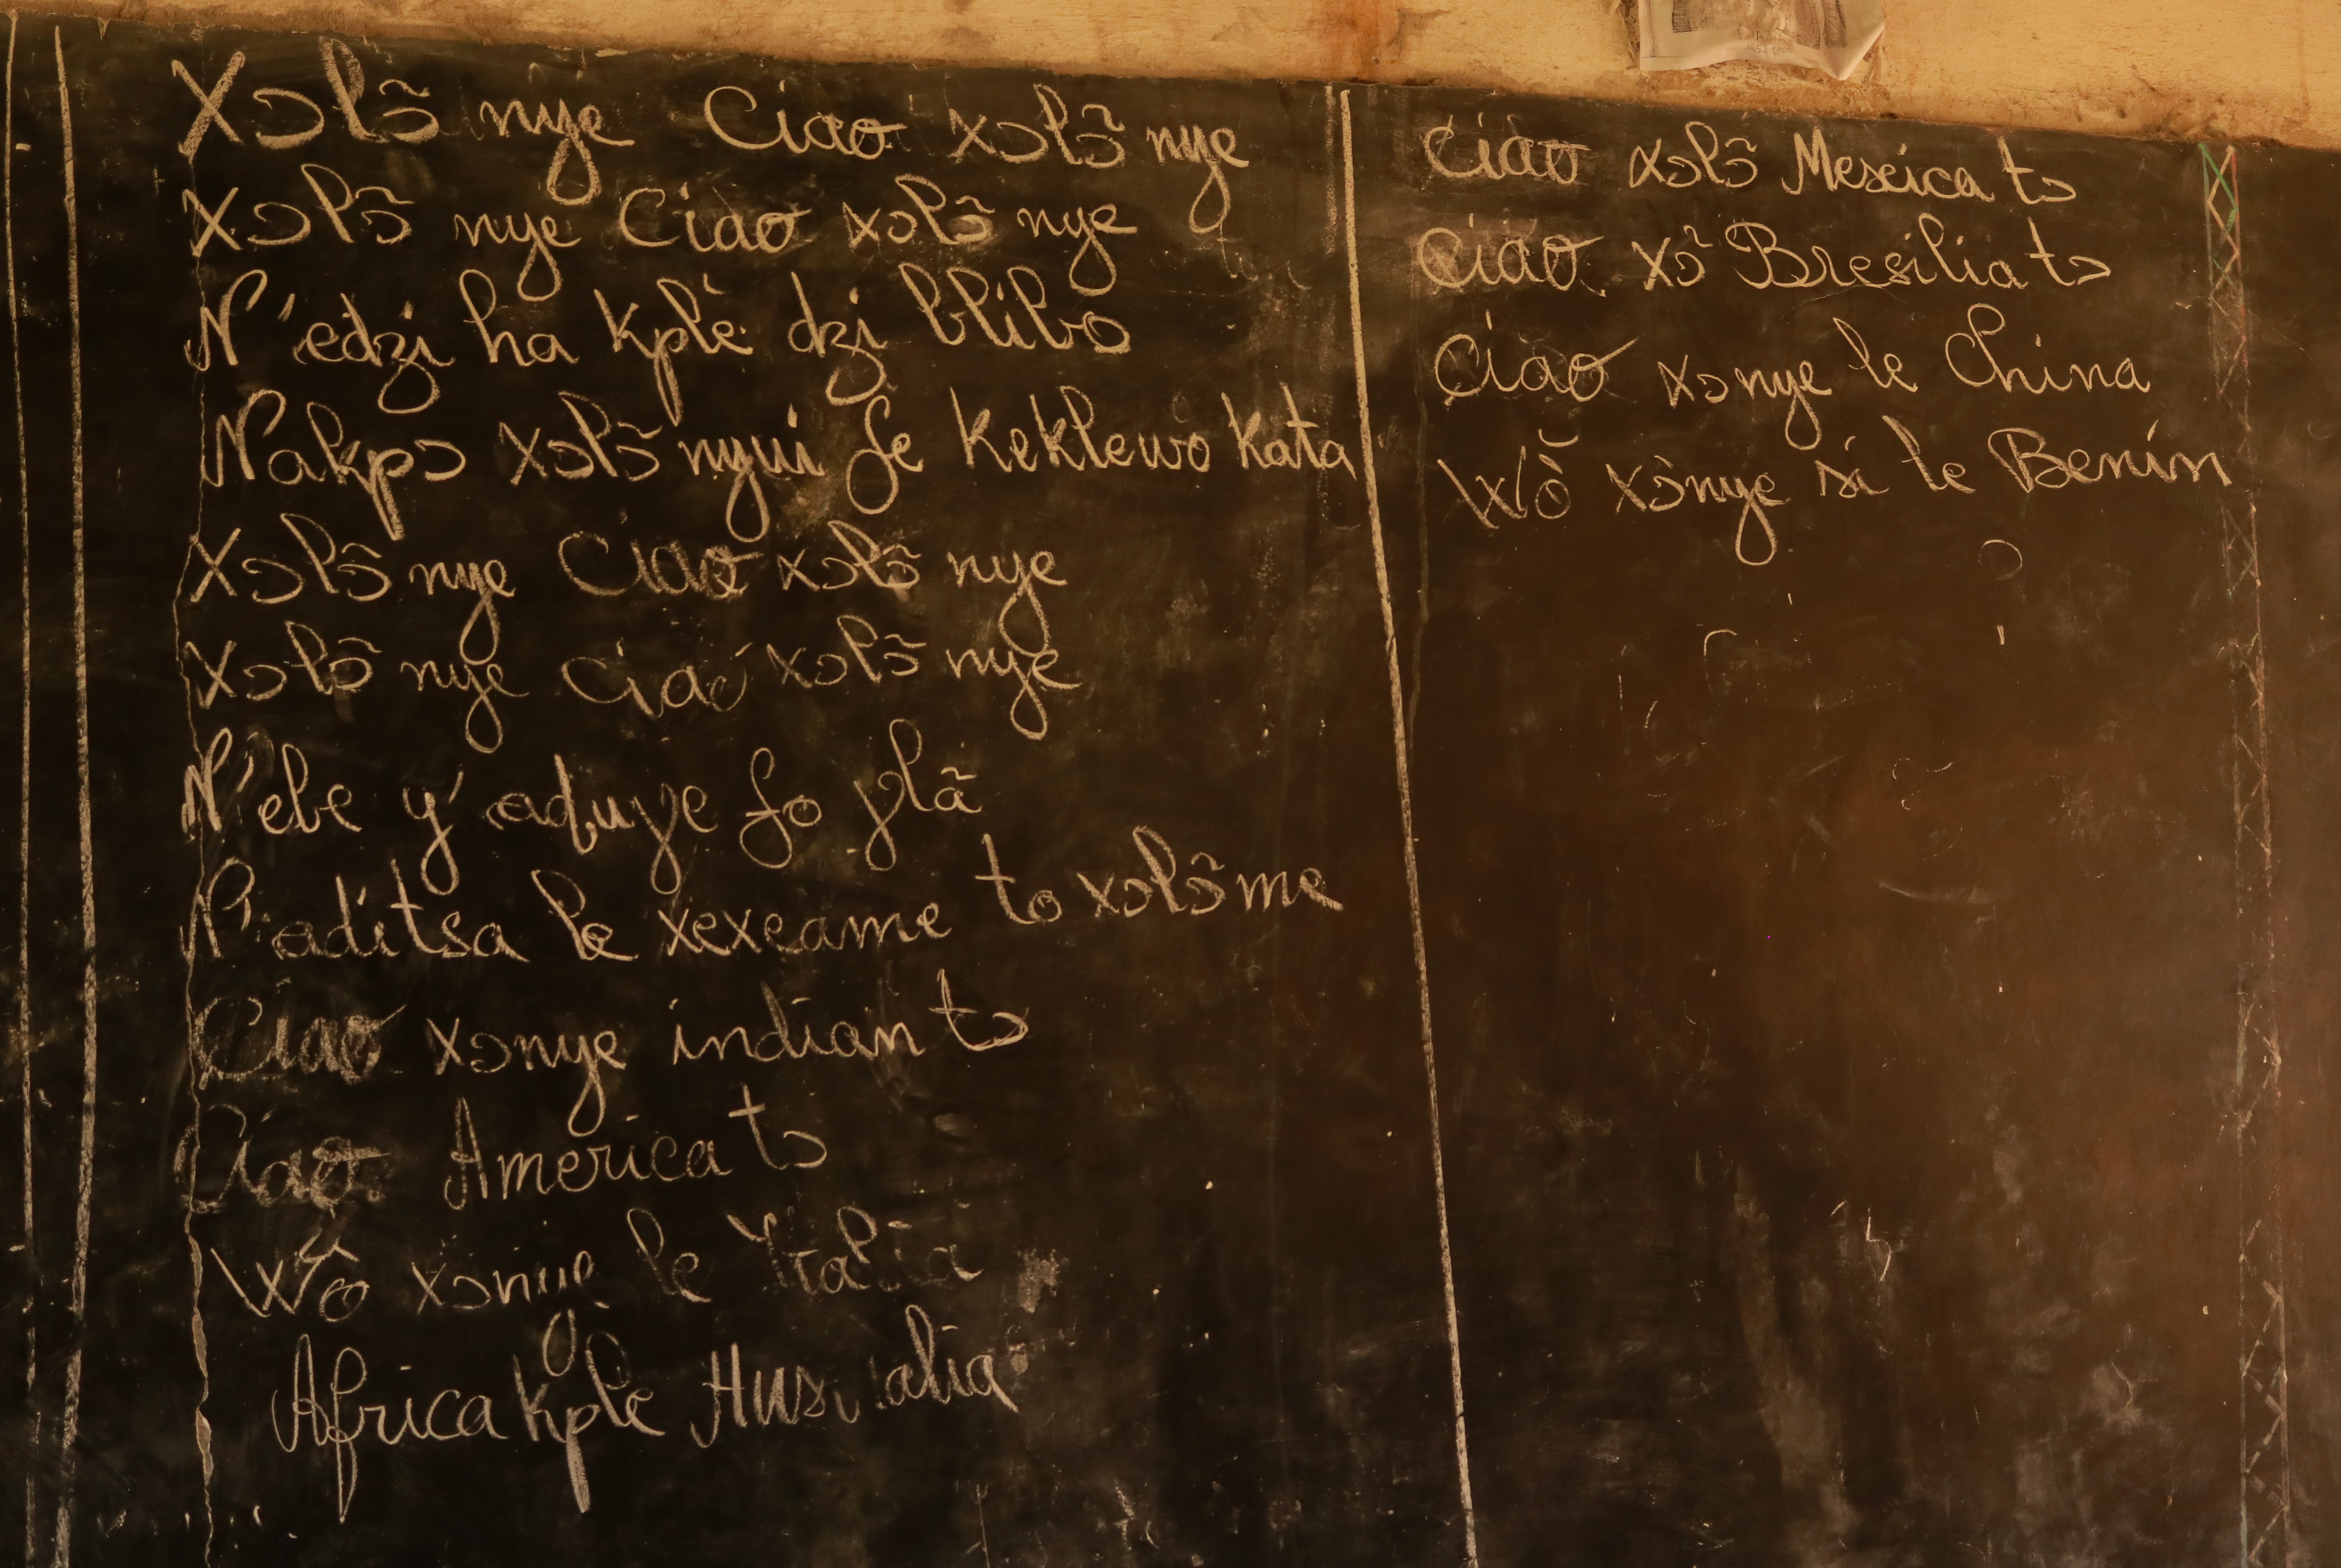 Xɔlɔ̃ nye Ciao xɔlɔ̃ nye
Xɔlɔ̃ nye Ciao xɔlɔ̃ nye
N'edzi ha kplè dzi blibo
Nakpɔ xɔlɔ̃ nyui fe Keklewo Kata
Xɔlɔ̃ nye Ciao xɔlɔ̃ nye
Xɔlɔ̃ nye Ciao xɔlɔ̃ nye
N'ebe y' aɖuƴe fo ƴlã
N'aditsa le xexeame to xɔlɔ̃me
Ciao xɔnye indian tɔ
Ciao America tɔ
Wò xɔnye le Italia
Africa kple Australia
Ciao xɔlɔ̃ Mexica tɔ
Ciao xɔ̀ Bresilia tɔ
Ciao xɔnye le China
Wò xɔnye si le Benín